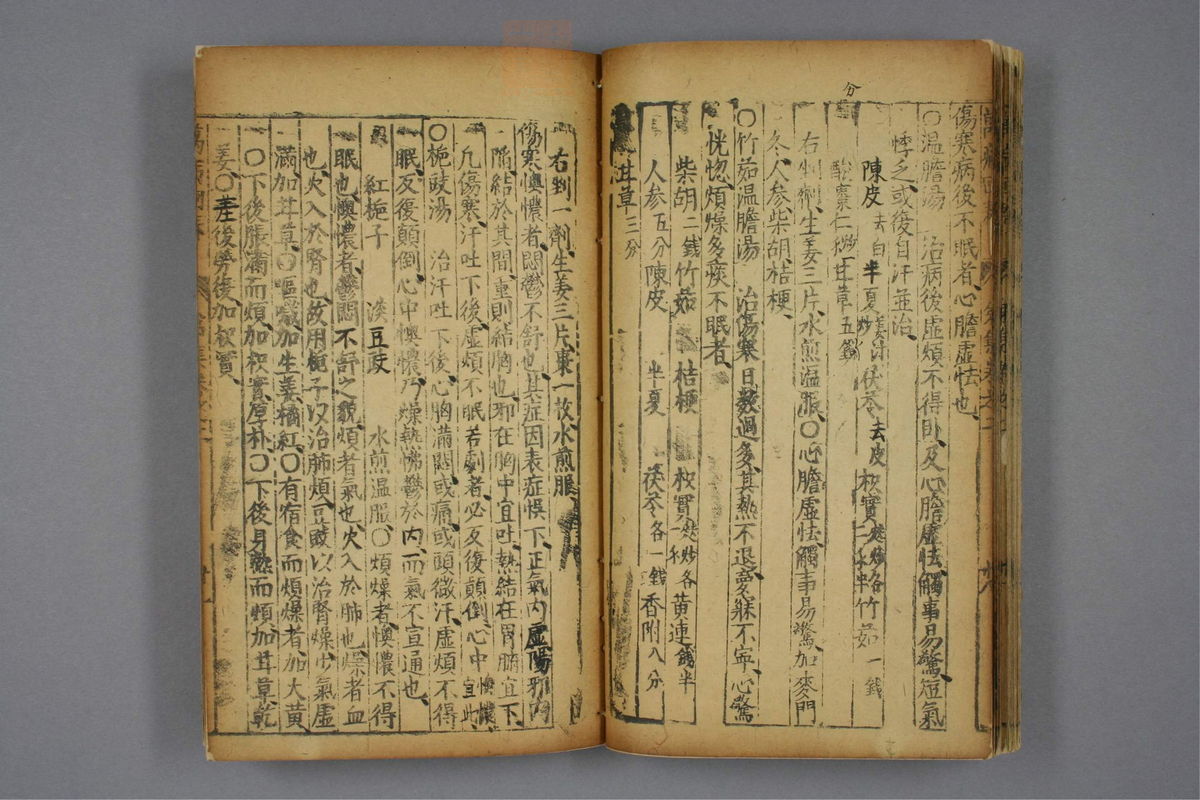 傷寒病後不眠者心膽虛怯也
○溫膽湯 治病後虛煩不得臥及心膽虛怯觸事易驚短氣
悸乏或復自汗並治
陳皮去白 半夏姜汁炒 茯苓去皮 枳實麸炒各二錢半 竹茹一錢
分
酸棗仁炒 甘草五分
右剉劑生姜三片水煎溫服○心膽虛怯觸事易驚加麥門
冬人參柴胡桔梗
○竹茹溫膽湯 治傷寒日數過多其熱不退夢寐不寧心驚
恍惚煩燥多痰不眠者
柴胡二錢 竹茹 桔梗 枳實麸炒各一錢 黃連錢半
人參五分 陳皮 半夏 茯苓各一錢 香附八分
甘草三分
右剉一劑生姜三片棗一枚水煎服
傷寒懊憹者悶鬱不舒也其症因表症悞下正氣內虛陽邪內
陷結於其間重則結胸也邪在胸中宜吐熱結在胃腑宜下
凡傷寒汗吐下後虛煩不眠若劇者必反復顛倒心中懊憹宜此
○梔豉湯 治汗吐下後心胸滿悶或痛或頭微汗虛煩不得
眠反復顛倒心中懊憹乃燥熱怫鬱於內而氣不宣通也
紅梔子 淡豆豉 水煎溫服○煩燥者懊憹不得
眠也懊憹者鬱悶不舒之貌煩者氣也火入於肺也燥者血
也火入於腎也故用梔子以治肺煩豆豉以治腎燥少氣虛
滿加甘草○嘔噦加生姜橘紅○有宿食而煩燥者加大黃
○下後脹滿而煩加枳實厚朴○下後身熱而煩加甘草乾
姜○差後勞復加枳實